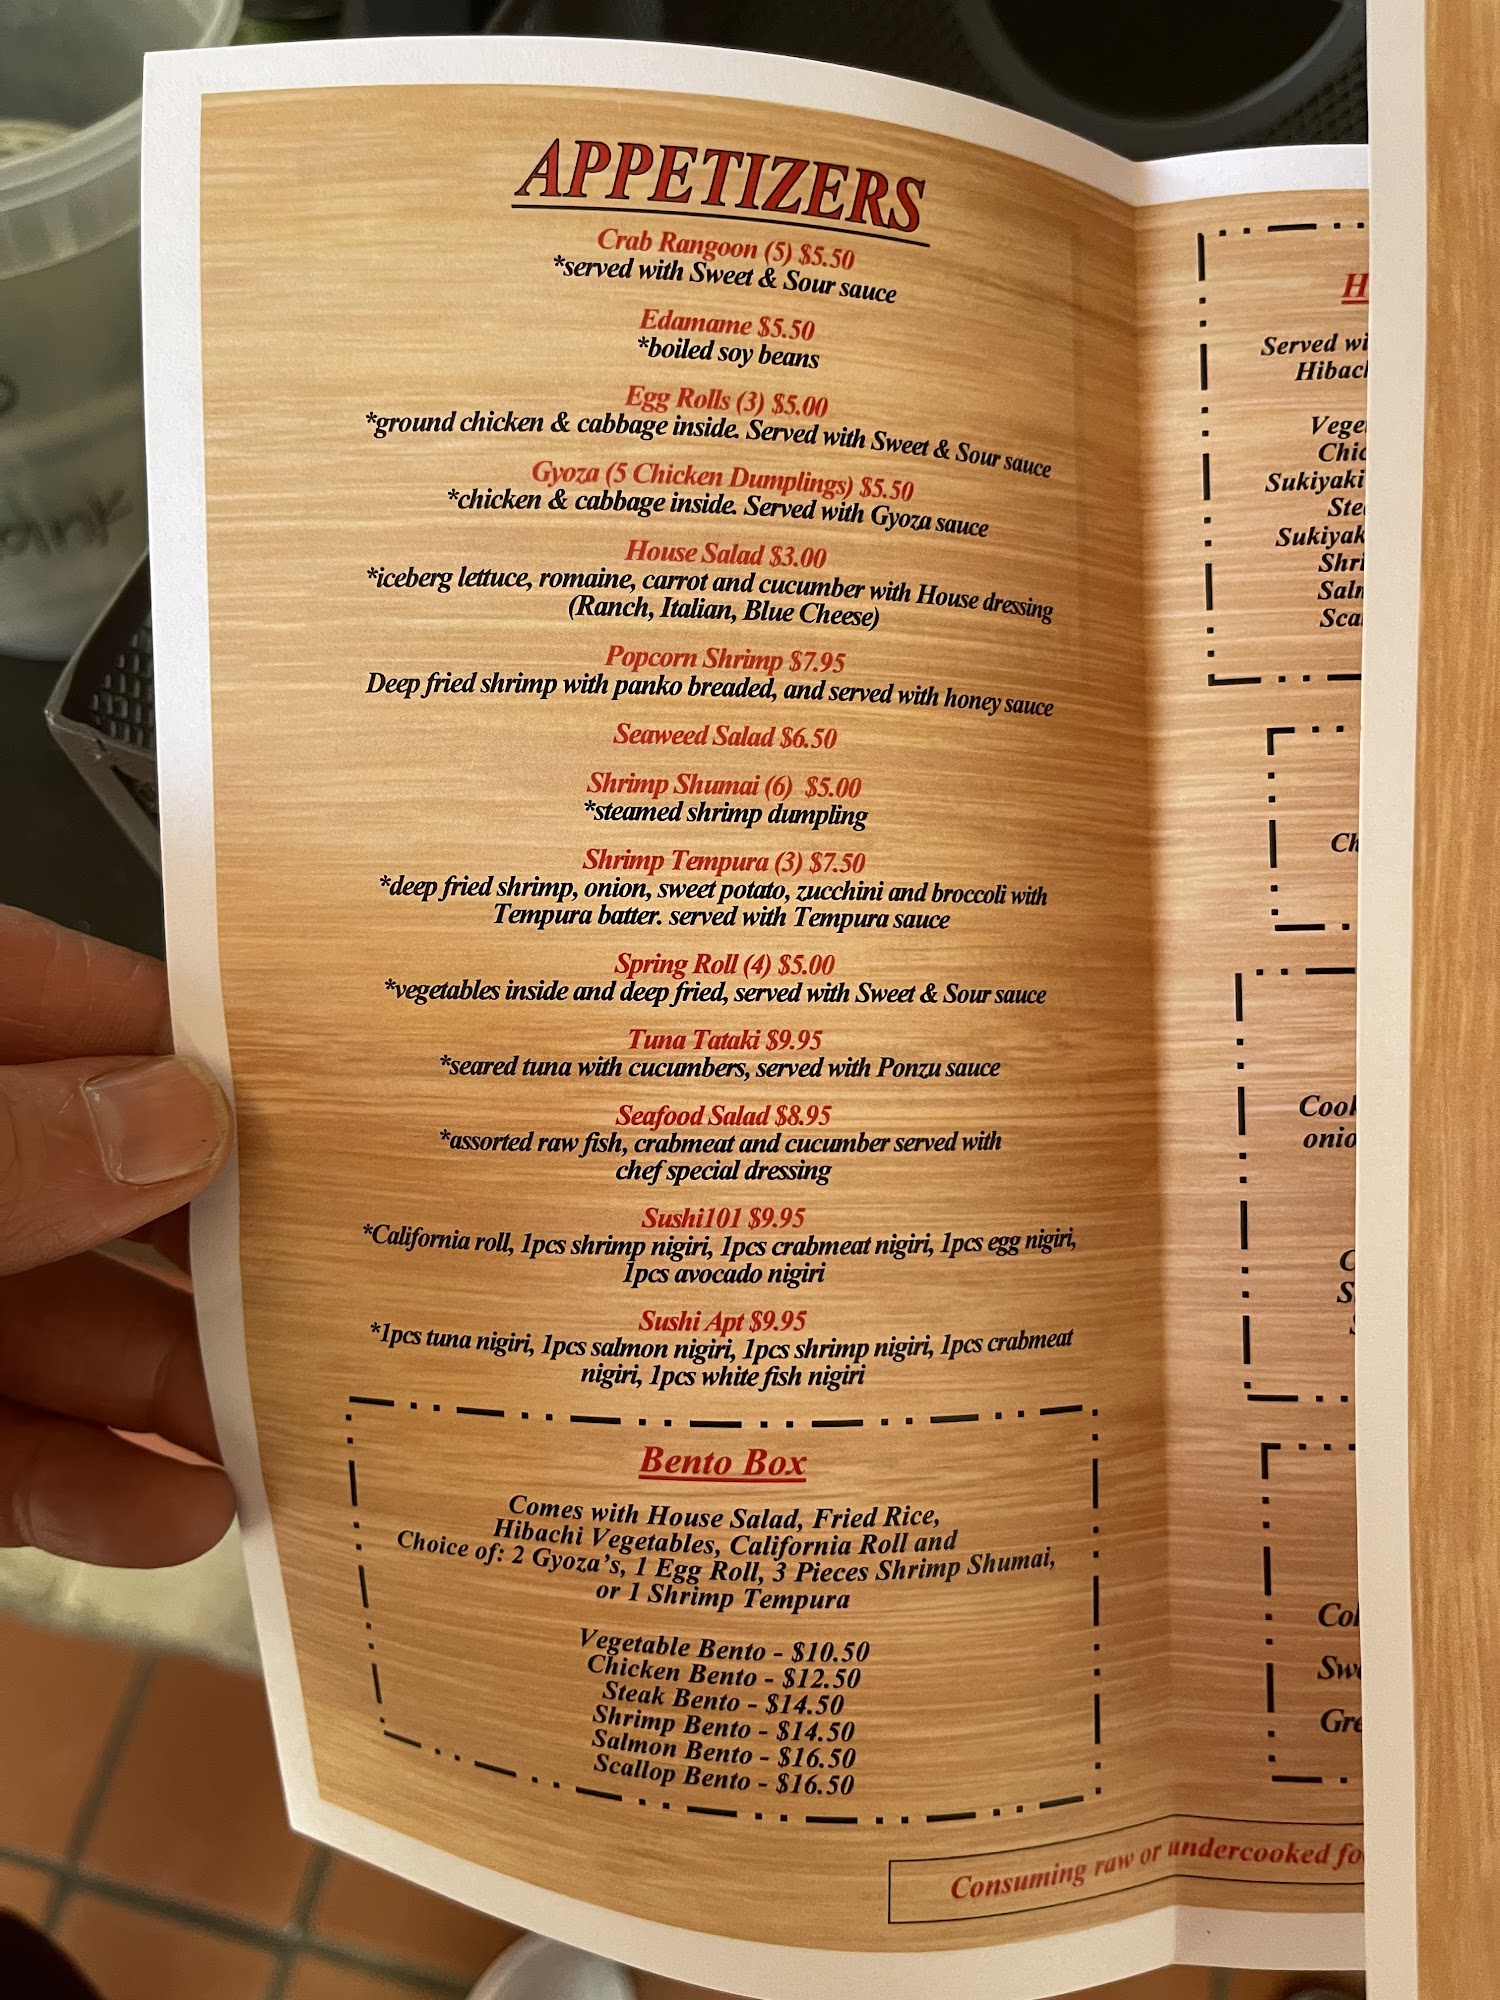 APPETIZERS
Crab Rangoon (5) $5.50
*served with Sweet & Sour sauce
Edamame $5.50
*boiled soy beans
Egg Rolls (3) $5.00
*ground chicken & cabbage inside. Served with Sweet & Sour sauce
Gyoza (5 Chicken Dumplings) $5.50
*chicken & cabbage inside. Served with Gyoza sauce
House Salad $3.00
*iceberg lettuce, romaine, carrot and cucumber with House dressing
(Ranch, Italian, Blue Cheese)
Popcorn Shrimp $7.95
Deep fried shrimp with panko breaded, and served with honey sauce
Seaweed Salad $6.50
Shrimp Shumai (6) $5.00
*steamed shrimp dumpling
Shrimp Tempura (3) $7.50
*deep fried shrimp, onion, sweet potato, zucchini and broccoli with
Tempura batter. served with Tempura sauce
Spring Roll (4) $5.00
*vegetables inside and deep fried, served with Sweet & Sour sauce
Tuna Tataki $9.95
*seared tuna with cucumbers, served with Ponzu sauce
Seafood Salad $8.95
*assorted raw fish, crabmeat and cucumber served with
chef special dressing
Sushi101 $9.95
*California roll, 1pcs shrimp nigiri, 1pcs crabmeat nigiri, 1pcs egg nigiri,
1pcs avocado nigiri
Sushi Apt $9.95
*1pcs tuna nigiri, 1pcs salmon nigiri, 1pcs shrimp nigiri, 1pcs crabmeat
nigiri, 1pcs white fish nigiri
Bento Box
Comes with House Salad, Fried Rice,
Hibachi Vegetables, California Roll and
Choice of: 2 Gyoza's, 1 Egg Roll, 3 Pieces Shrimp Shumai,
or 1 Shrimp Tempura
Vegetable Bento - $10.50
Chicken Bento - $12.50
Steak Bento - $14.50
Shrimp Bento - $14.50
Salmon Bento - $16.50
Scallop Bento - $16.50
Served
Sukiyaki
Consuming raw or undercooked